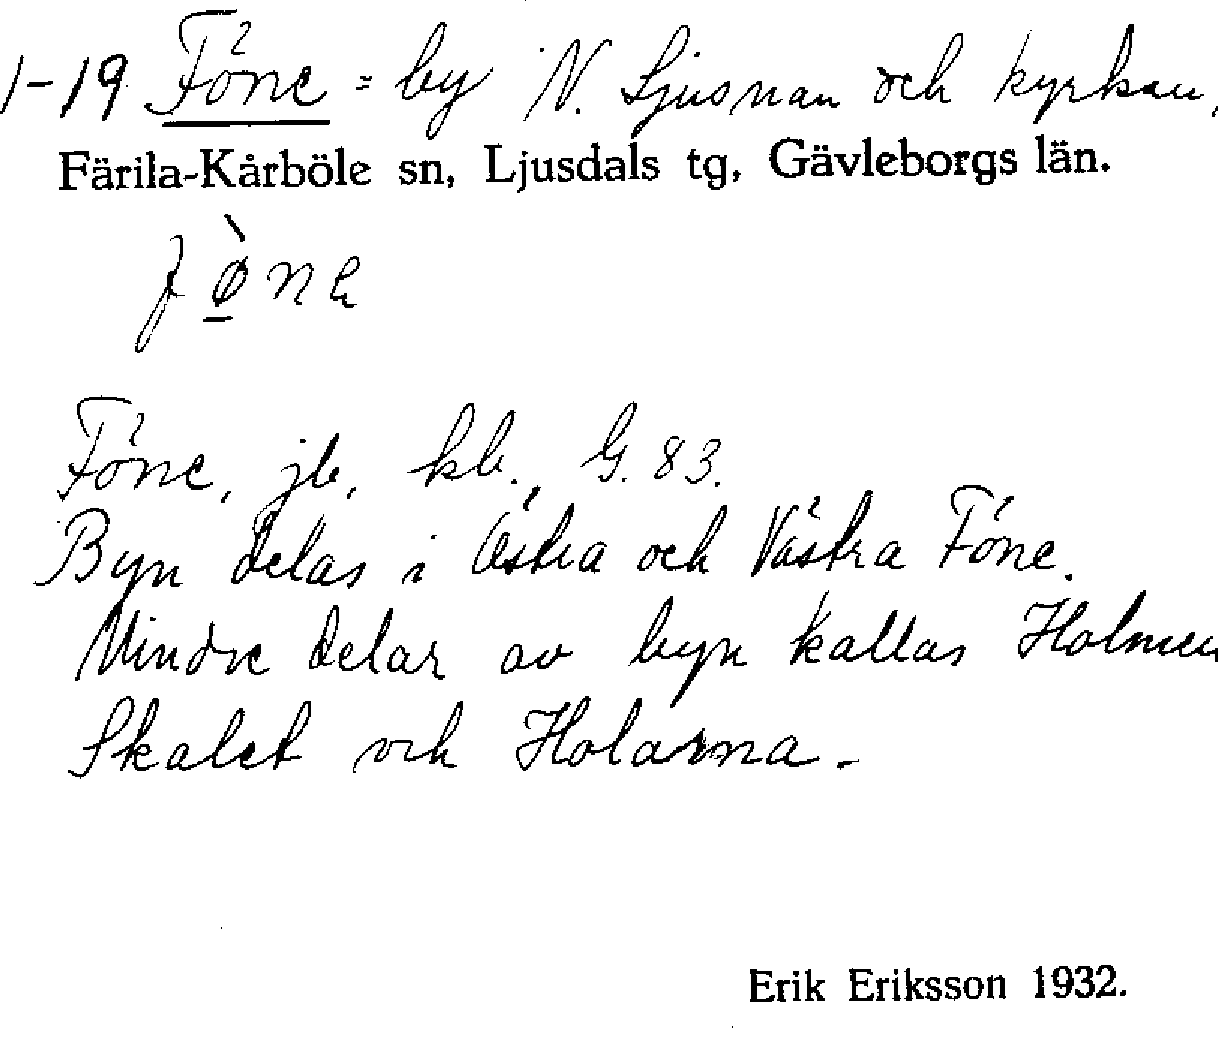 1-19 Föne = by N. Ljusnan och kyrkan.
Färila-Kårböle sn, Ljusdals tg, Gävleborgs län.
fø̱̀ne
Föne, jb, kb., G. 83.
Byn delas i Östra och Västra Föne.
Mindre delar av byn kallas Holmen
Skalet och Holarna.
Erik Eriksson 1932.